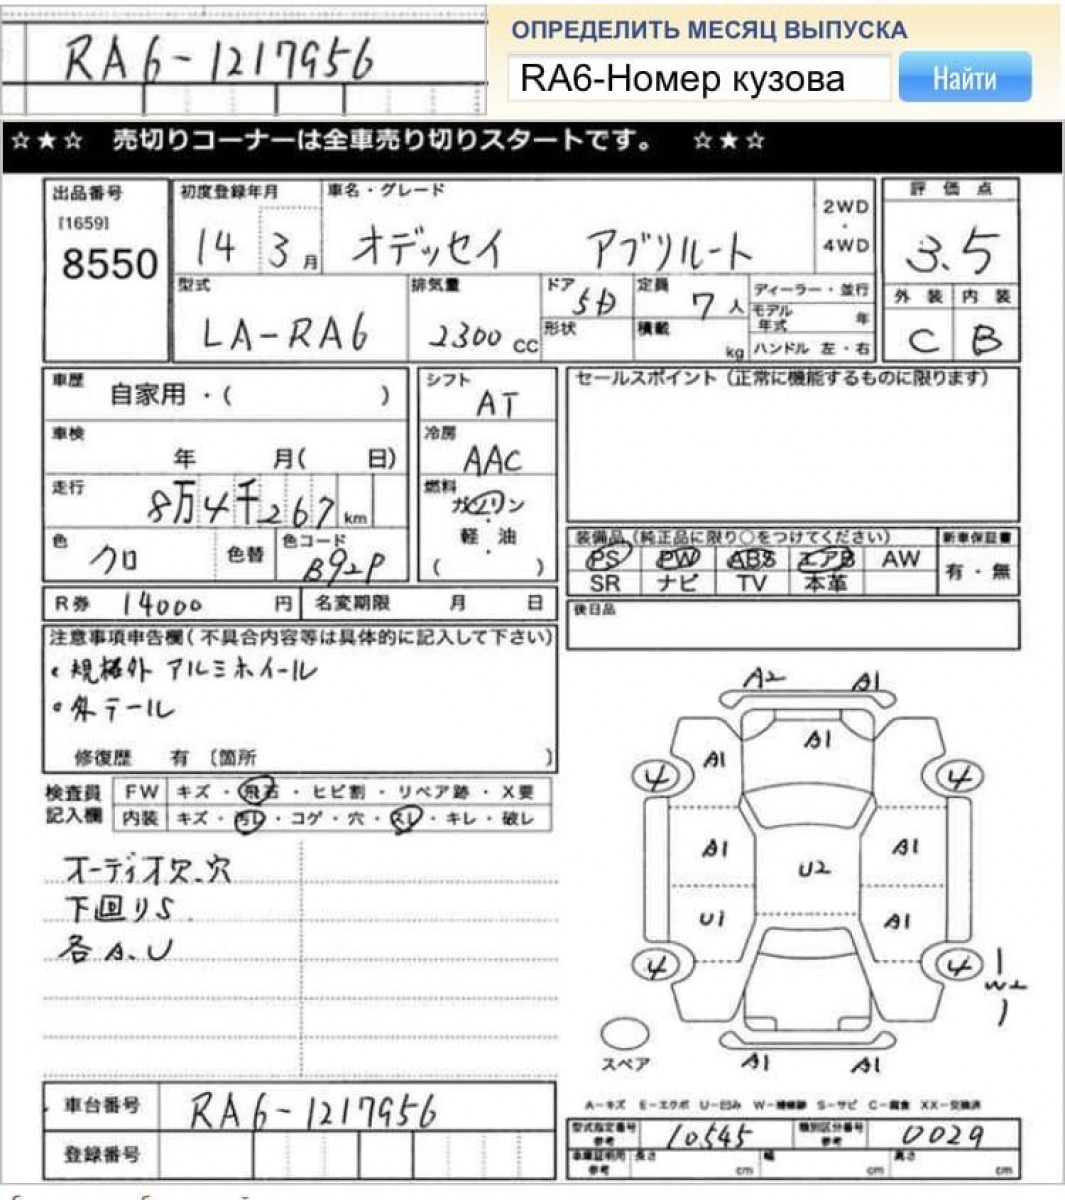 RA6-1217956
ОПРЕДЕЛИТЬ МЕСЯЦ ВЫПУСКА
RA6-Номер кузова
Найти
☆★☆ 売切りコーナーは全車売り切りスタートです。 ☆★☆
出品番号
[1659]
8550
初度登録年月
14 3月
車名・グレード
オデッセイ アブソルート
2WD
・
4WD
評価点
3.5
外装 内装
C B
型式
LA-RA6
排気量
2300 CC
ドア
5D
形状
定員
7人
積載
kg
ディーラー・並行
モデル年式 年
ハンドル 左・右
車歴
自家用・( )
車検
年 月( 日)
走行
8万4千267 km
色
クロ
色替
色コード
B92P
シフト
AT
冷房
AAC
燃料
ガソリン
・
軽・油
・
( )
セールスポイント(正常に機能するものに限ります)
装備品(純正品に限り○をつけてください)
PS PW ABS エアB AW
SR ナビ TV 本革
新車保証書
有・無
R券 14000 円
名変期限 月 日
後日品
注意事項申告欄(不具合内容等は具体的に記入して下さい)
・規格外 アルミホイール
・外テール
修復歴 有 〔箇所 〕
検査員
記入欄
FW キズ・飛石・ヒビ割・リペア跡・X要
内装 キズ・汚レ・コゲ・穴・スレ・キレ・破レ
オーディオ欠.穴
下回りS
各A.U
A2 A1
A1 A1
4 4
A1 A1
U2
U1 A1
4 4
W2
スペア
A1 A1
A-キズ E-エクボ U-凹み W-補修跡 S-サビ C-腐食 XX-交換済
車台番号
RA6-1217956
登録番号
型式指定番号
参考
10545
類別区分番号
参考
0029
車庫証明用
参考
長さ cm
幅 cm
高さ cm